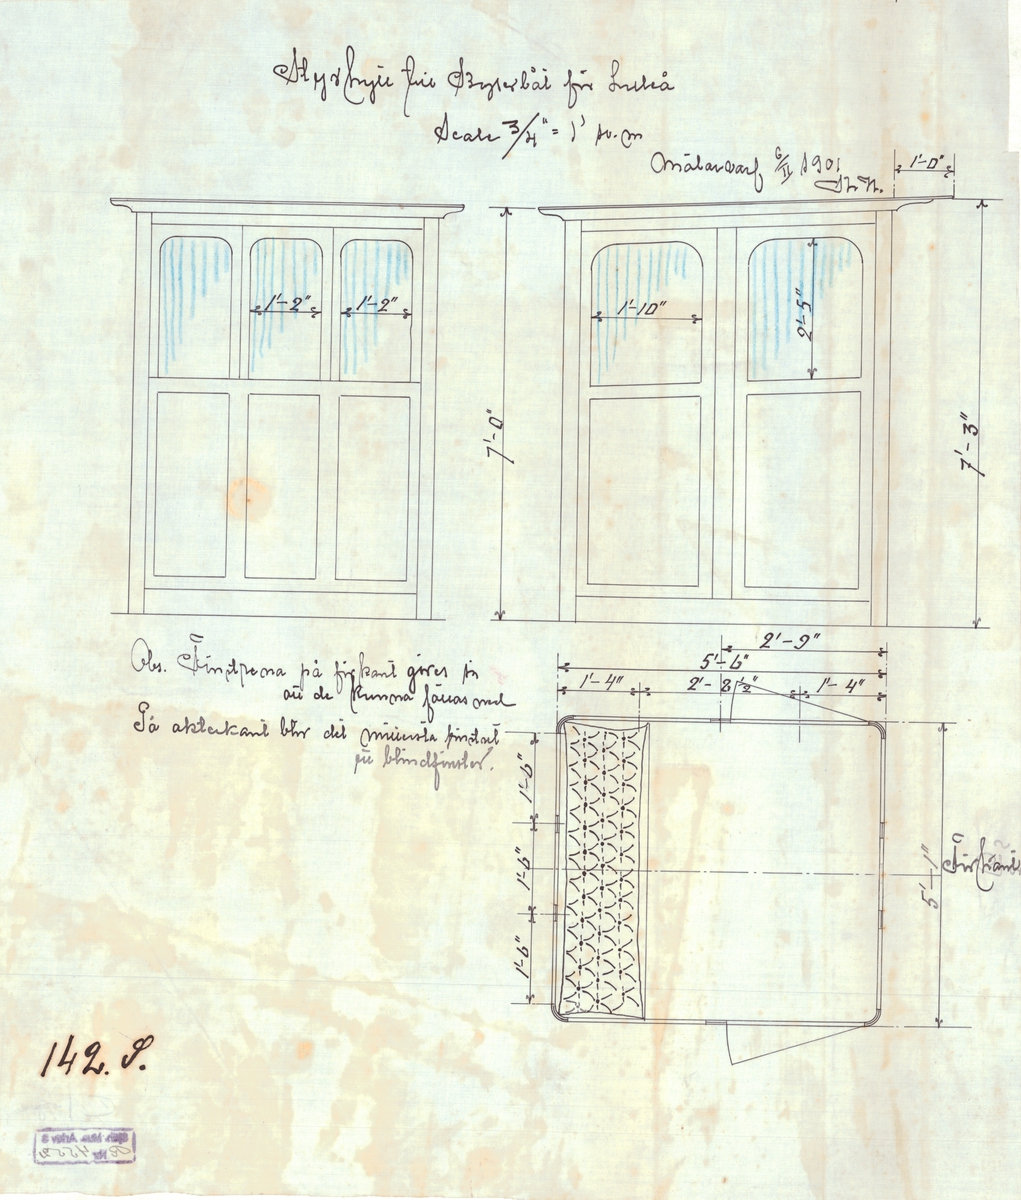 Styrhytt till Bogserbåt för Luleå
Scale 3/4" = 1' pr. m
Mälarvarf 6/II 1901
1'-0"
1'-2" 1'-2"
1'-10"
2'-5"
7'-0"
7'-3"
Obs. Fönstrena på förkant göres så
att de kunna fällas ned
På akterkant blir det mittersta fönstret
ett blindfönster.
2'-9"
5'-6"
1'-4" 2'-8 1/2" 1'-4"
1'-6"
1'-6"
1'-6"
5'-1"
Förkant
142. S.